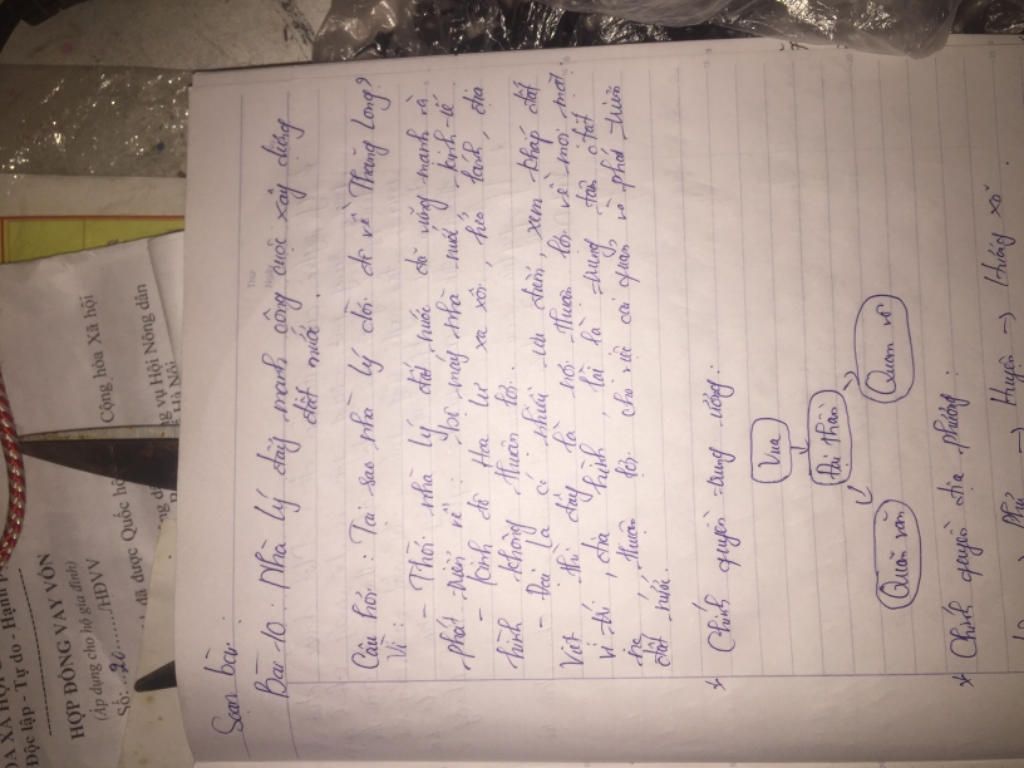 Soạn bài:
Bài 10: Nhà Lý đẩy mạnh công cuộc xây dựng
đất nước.
Câu hỏi: Tại sao nhà Lý dời đô về Thăng Long?
Vì:
- Thời nhà Lý đất nước đã vững mạnh và
phát triển về mọi mặt nhà nước kinh tế
- Kinh đô Hoa Lư xa xôi, hẻo lánh, địa
hình không thuận lợi.
- Đại La có nhiều ưu điểm, xem khắp đất
Việt thì đây là nơi thuận lợi về mọi mặt
vị trí, địa hình lại là trung tâm đất
thuận lợi cho việc cai quản và phát triển
đất nước.
* Chính quyền trung ương:
Vua
Đại thần
Quan văn
Quan võ
* Chính quyền địa phương:
Phủ => Huyện => Hương xã
CỘNG HÒA XÃ HỘI
Độc lập - Tự do - Hạnh
HỢP ĐỒNG VAY VỐN
(Áp dụng cho hộ gia đình)
Số: 26 /HĐVV
đã được Quốc hội
Cộng hòa Xã hội
vụ Hội Nông dân
Hà Nội